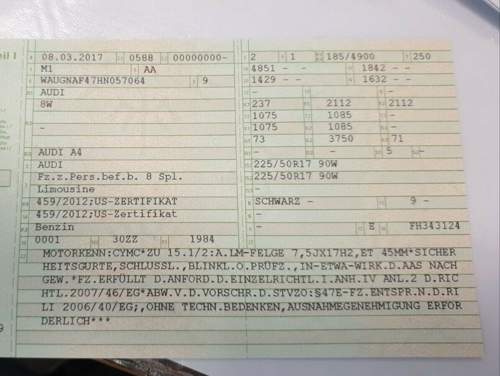 08.03.2017 0588 00000000-
M1 AA
WAUGNAF47HN057064 9
AUDI
8W
-
AUDI A4
AUDI
Fz.z.Pers.bef.b. 8 Spl.
Limousine
459/2012;US-ZERTIFIKAT
459/2012;US-Zertifikat
Benzin
0001 30ZZ 1984
2 1 185/4900 250
4851 - - 1842 - -
1429 - - 1632 - -
- - -
237 2112 2112
1075 1085 -
1075 1085 -
73 3750 71
- - 5 -
225/50R17 90W
225/50R17 90W
-
SCHWARZ - 9 -
-
- E FH343124
-
MOTORKENN:CYMC*ZU 15.1/2:A.LM-FELGE 7,5JX17H2,ET 45MM*SICHER
HEITSGURTE,SCHLUSSL.,BLINKL.O.PRÜFZ.,IN-ETWA-WIRK.D.AAS NACH
GEW.*FZ.ERFÜLLT D.ANFORD.D.EINZELRICHTL.I.ANH.IV ANL.2 D.RIC
HTL.2007/46/EG*ABW.V.D.VORSCHR.D.STVZO:§47E-FZ.ENTSPR.N.D.RI
LI 2006/40/EG;,OHNE TECHN.BEDENKEN,AUSNAHMEGENEHMIGUNG ERFOR
DERLICH***